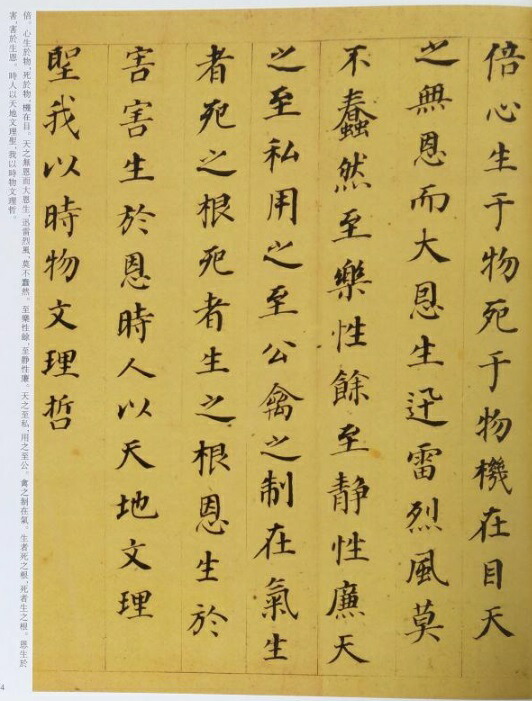 倍心生于物死于物機在目天
之無恩而大恩生迅雷烈風莫
不蠢然至樂性餘至静性廉天
之至私用之至公禽之制在氣生
者死之根死者生之根恩生於
害害生於恩時人以天地文理
聖我以時物文理哲
倍。心生於物，死於物，機在目。天之無恩而大恩生，迅雷烈風，莫不蠢然。至樂性餘，至靜性廉。天之至私，用之至公。禽之制在氣。生者死之根，死者生之根。恩生於
害，害於生恩。時人以天地文理聖，我以時物文理哲。
4